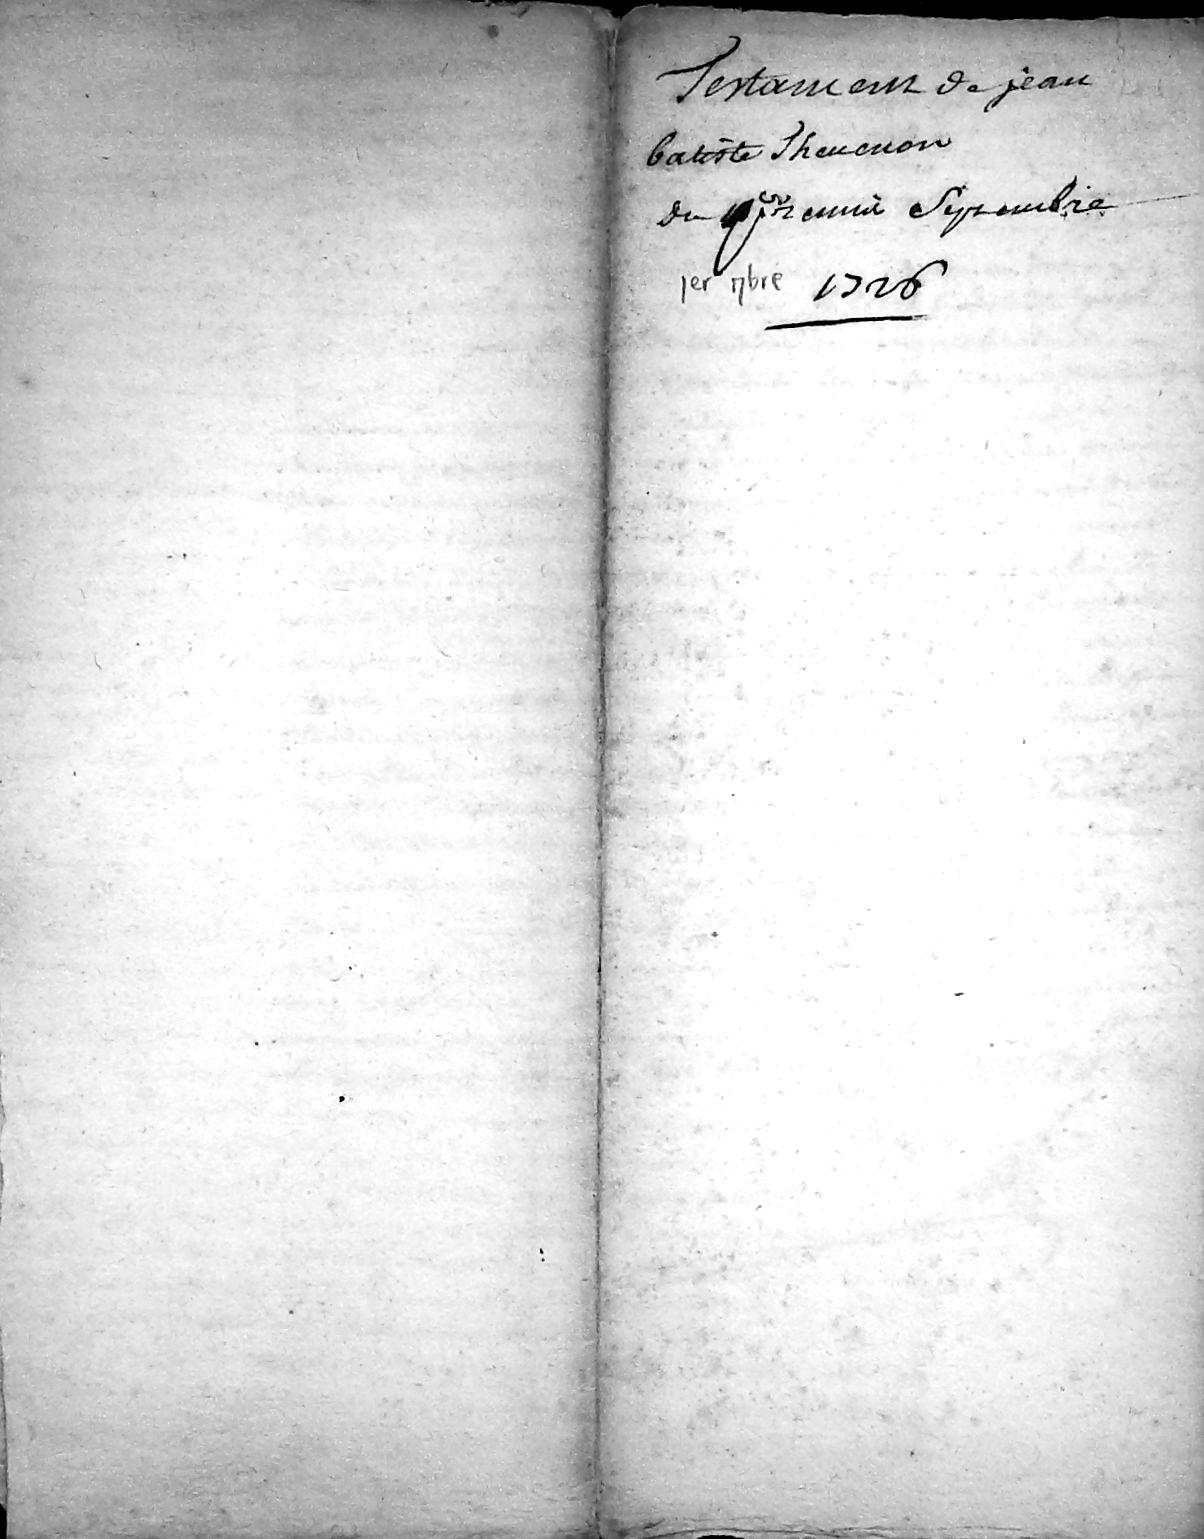 Testament de jean
batiste Theuenon
du premié Septembre
1er 7bre 1726